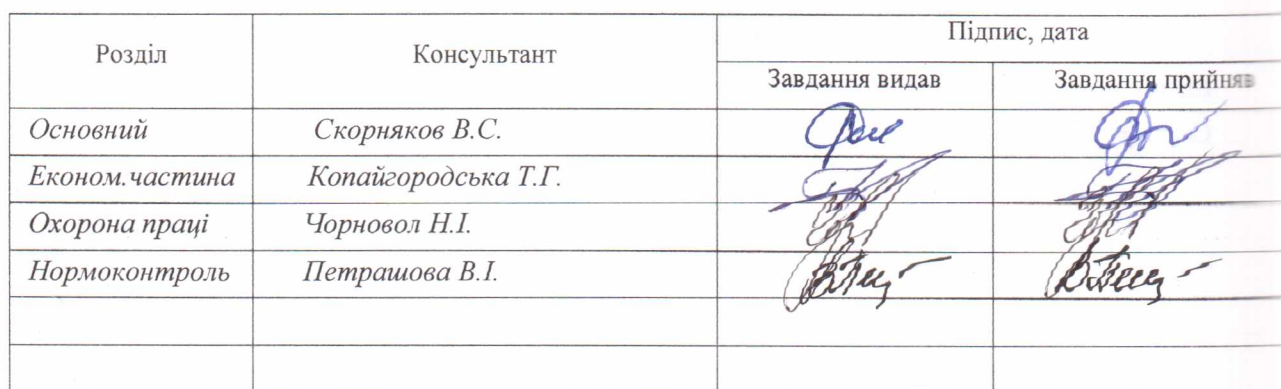 Розділ Консультант Підпис, дата
Завдання видав Завдання прийняв
Основний Скорняков В.С.
Економ.частина Копайгородська Т.Г.
Охорона праці Чорновол Н.І.
Нормоконтроль Петрашова В.І.